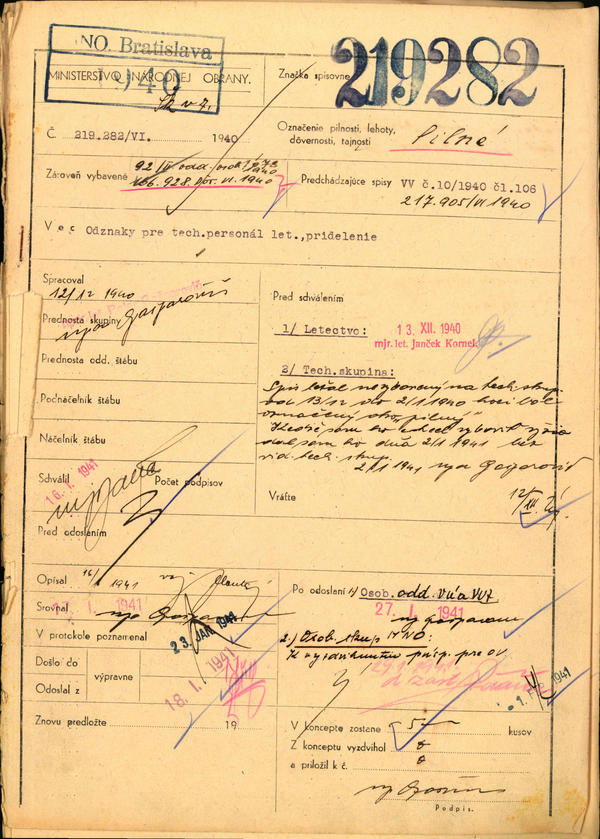 NO. Bratislava
1940
MINISTERSTVO NÁRODNEJ OBRANY.
Značka spisovne
219282
Č. 219.282/VI. 1940
Označenie pilnosti, lehoty,
dôvernosti, tajnosti
Pilné
Zároveň vybavené
106.928 Dôv. VI. 1940
Predchádzajúce spisy VV č.10/1940 čl.106
217.905/VI 1940
Vec Odznaky pre tech.personál let.,pridelenie
Spracoval
12/12 1940
Prednosta skupiny
Prednosta odd. štábu
Podnáčelník štábu
Náčelník štábu
Schválil
16. I. 1941
Počet podpisov
Pred odoslaním
Pred schválením
1/ Letectvo:
13. XII. 1940
mjr. let. Janček Kornel
2/ Tech.skupina:
Spis ležal nevyborený na tech. skup.
od 13/12 do 2/1 1940 hoci bol
označený ako „pilný“
dal som ho dňa 2/1 1941 bez
vid. tech. skup.
2/1 1941
Vráťte
12/XII.
Opísal 1941
Srovnal 17. I. 1941
V protokole poznamenal
23. JAN. 1941
Došlo do
výpravne
Odoslal z
18. I. 1941
Znovu predložte 19
Po odoslaní 1/ Osob. odd. VÚ a VVZ
27. I. 1941
2./ Osob. skup MNO:
29. I. 1941
1941
V koncepte zostane 5 kusov
Z konceptu vyzdvihol
a priložil k č.
Podpis.